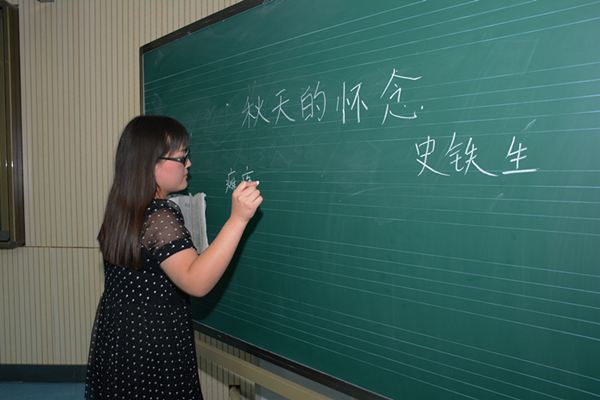 秋天的怀念
史铁生
瘫